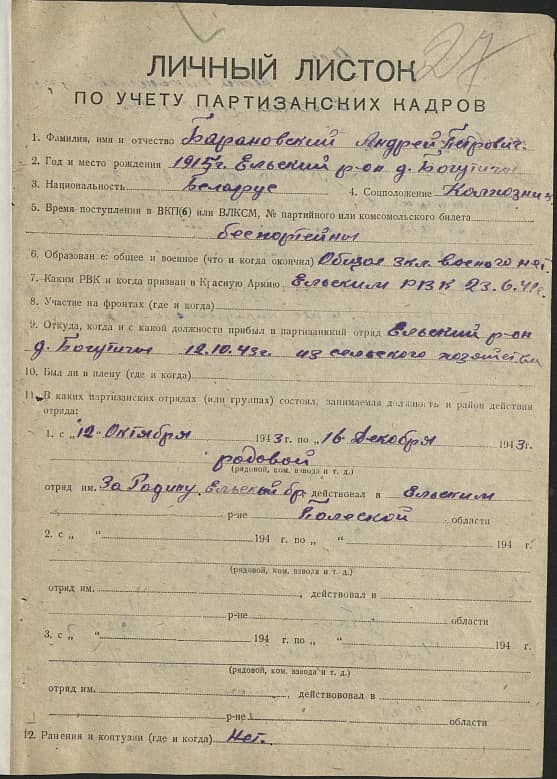 27
ЛИЧНЫЙ ЛИСТОК
ПО УЧЕТУ ПАРТИЗАНСКИХ КАДРОВ
1. Фамилия, имя и отчество Барановский Андрей Петрович.
2. Год и место рождения 1915 г. Ельский р-он д. Богутичи
3. Национальность Беларус 4. Соцположение Колхозник
5. Время поступления в ВКП(б) или ВЛКСМ, № партийного или комсомольского билета
беспортейны
6. Образован е: общее и военное (что и когда окончил) Общая 3кл. военого нет
7. Каким РВК и когда призван в Красную Армию Ельским РВК 23.6.41г.
8. Участие на фронтах (где и когда)
9. Откуда, когда и с какой должности прибыл в партизанккий отряд Ельский р-он
д. Богутичи 12.10.43г. из сельского хозяйства
10. Был ли в плену (где и когда)
11. В каких партизанских отрядах (или группах) состоял, занимаемая должность и район действия
отряда:
1. с „12" Октября 1943 г. по „16" Декабря 1943 г.
родовой
(рядовой, ком. взвода и т. д.)
отряд им. За Родину, Ельской бр. действовал в Ельским
р-не Полеской области
2. с „ " 194 г. по „ " 194 г.
(рядовой, ком. взвола и т. д.)
отряд им. , действовал в
р-не области
3. с „ " 194 г. по „ " 194 г.
(рядовой, ком. взвода и т. д.)
отряд им. , действововал в
р-не области
12. Ранения и контузии (где и когда) Нет.